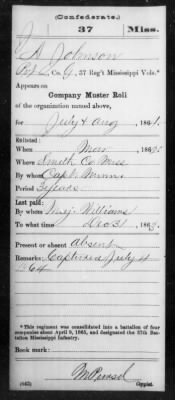 (Confederate.)
37 Miss.
J. A. Johnson
Co. G, 37 Reg't Mississippi Vols.*
Appears on
Company Muster Roll
of the organization named above,
for July & Aug, 1864.
Enlisted:
When Mar, 186
Where Smith Co Miss
By whom Capt.
Period 3 years
Last paid:
By whom Maj. Williams
To what time Dec 31, 1863.
Present or absent absent
Remarks: Captured July 4
1864
*This regiment was consolidated into a battalion of four
companies about April 9, 1865, and designated the 37th Bat-
talion Mississippi Infantry.
Book mark:
(642) Copyist.